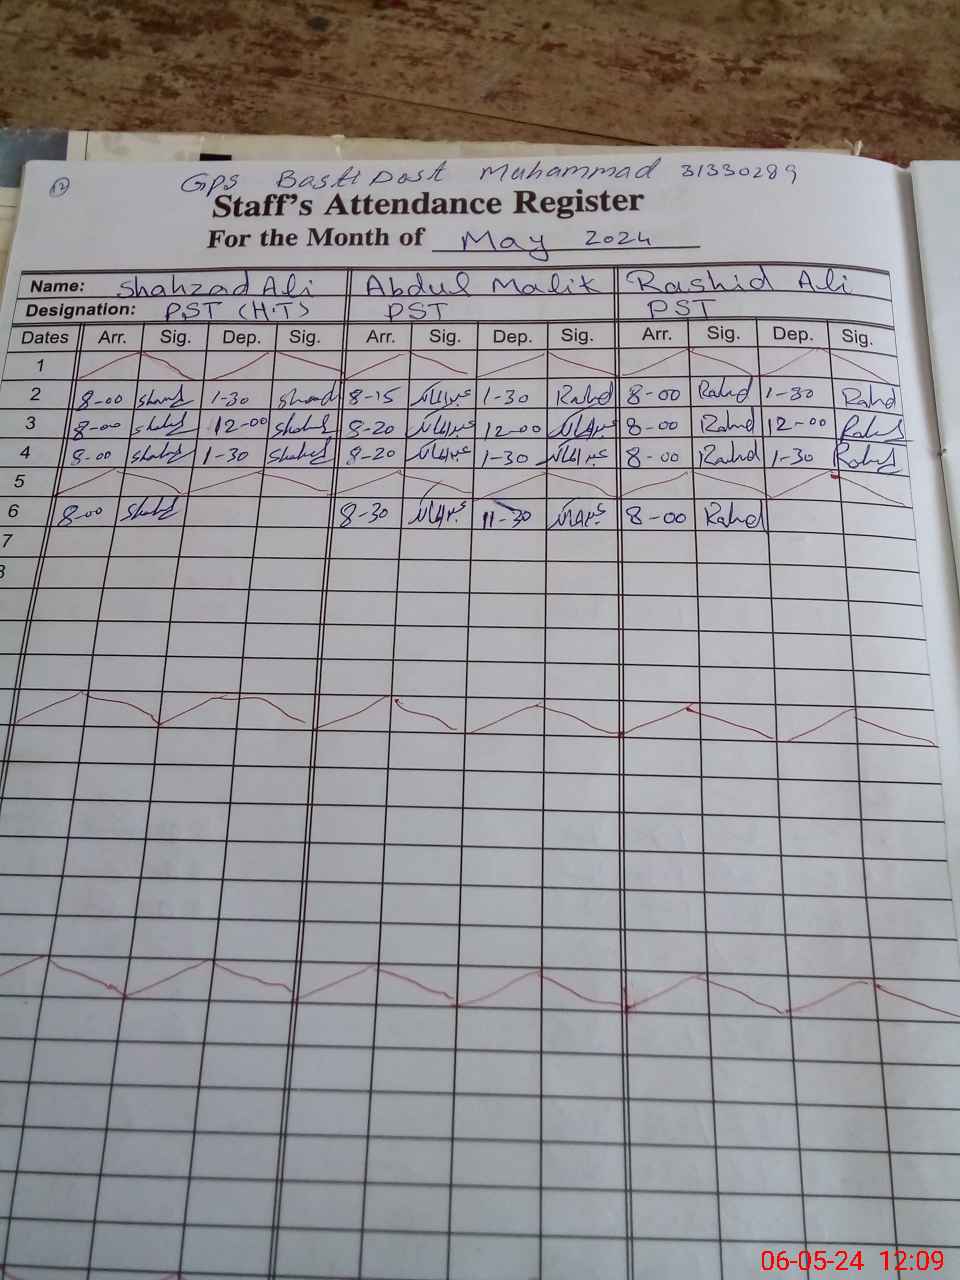 12
GPS Basti Dost Muhammad 31330289
Staff's Attendance Register
For the Month of May 2024
Name: Shahzad Ali Abdul Malik Rashid Ali
Designation: PST (H.T) PST PST
Dates Arr. Sig. Dep. Sig. Arr. Sig. Dep. Sig. Arr. Sig. Dep. Sig.
1
2 8-00 1-30 8-15 عبدالمالک 1-30 8-00 1-30
3 8-00 12-00 8-20 عبدالمالک 12-00 عبدالمالک 8-00 12-00
4 8-00 1-30 8-20 عبدالمالک 1-30 عبدالمالک 8-00 1-30
5
6 8-00 8-30 عبدالمالک 11-30 عبدالمالک 8-00
7
8
06-05-24 12:09